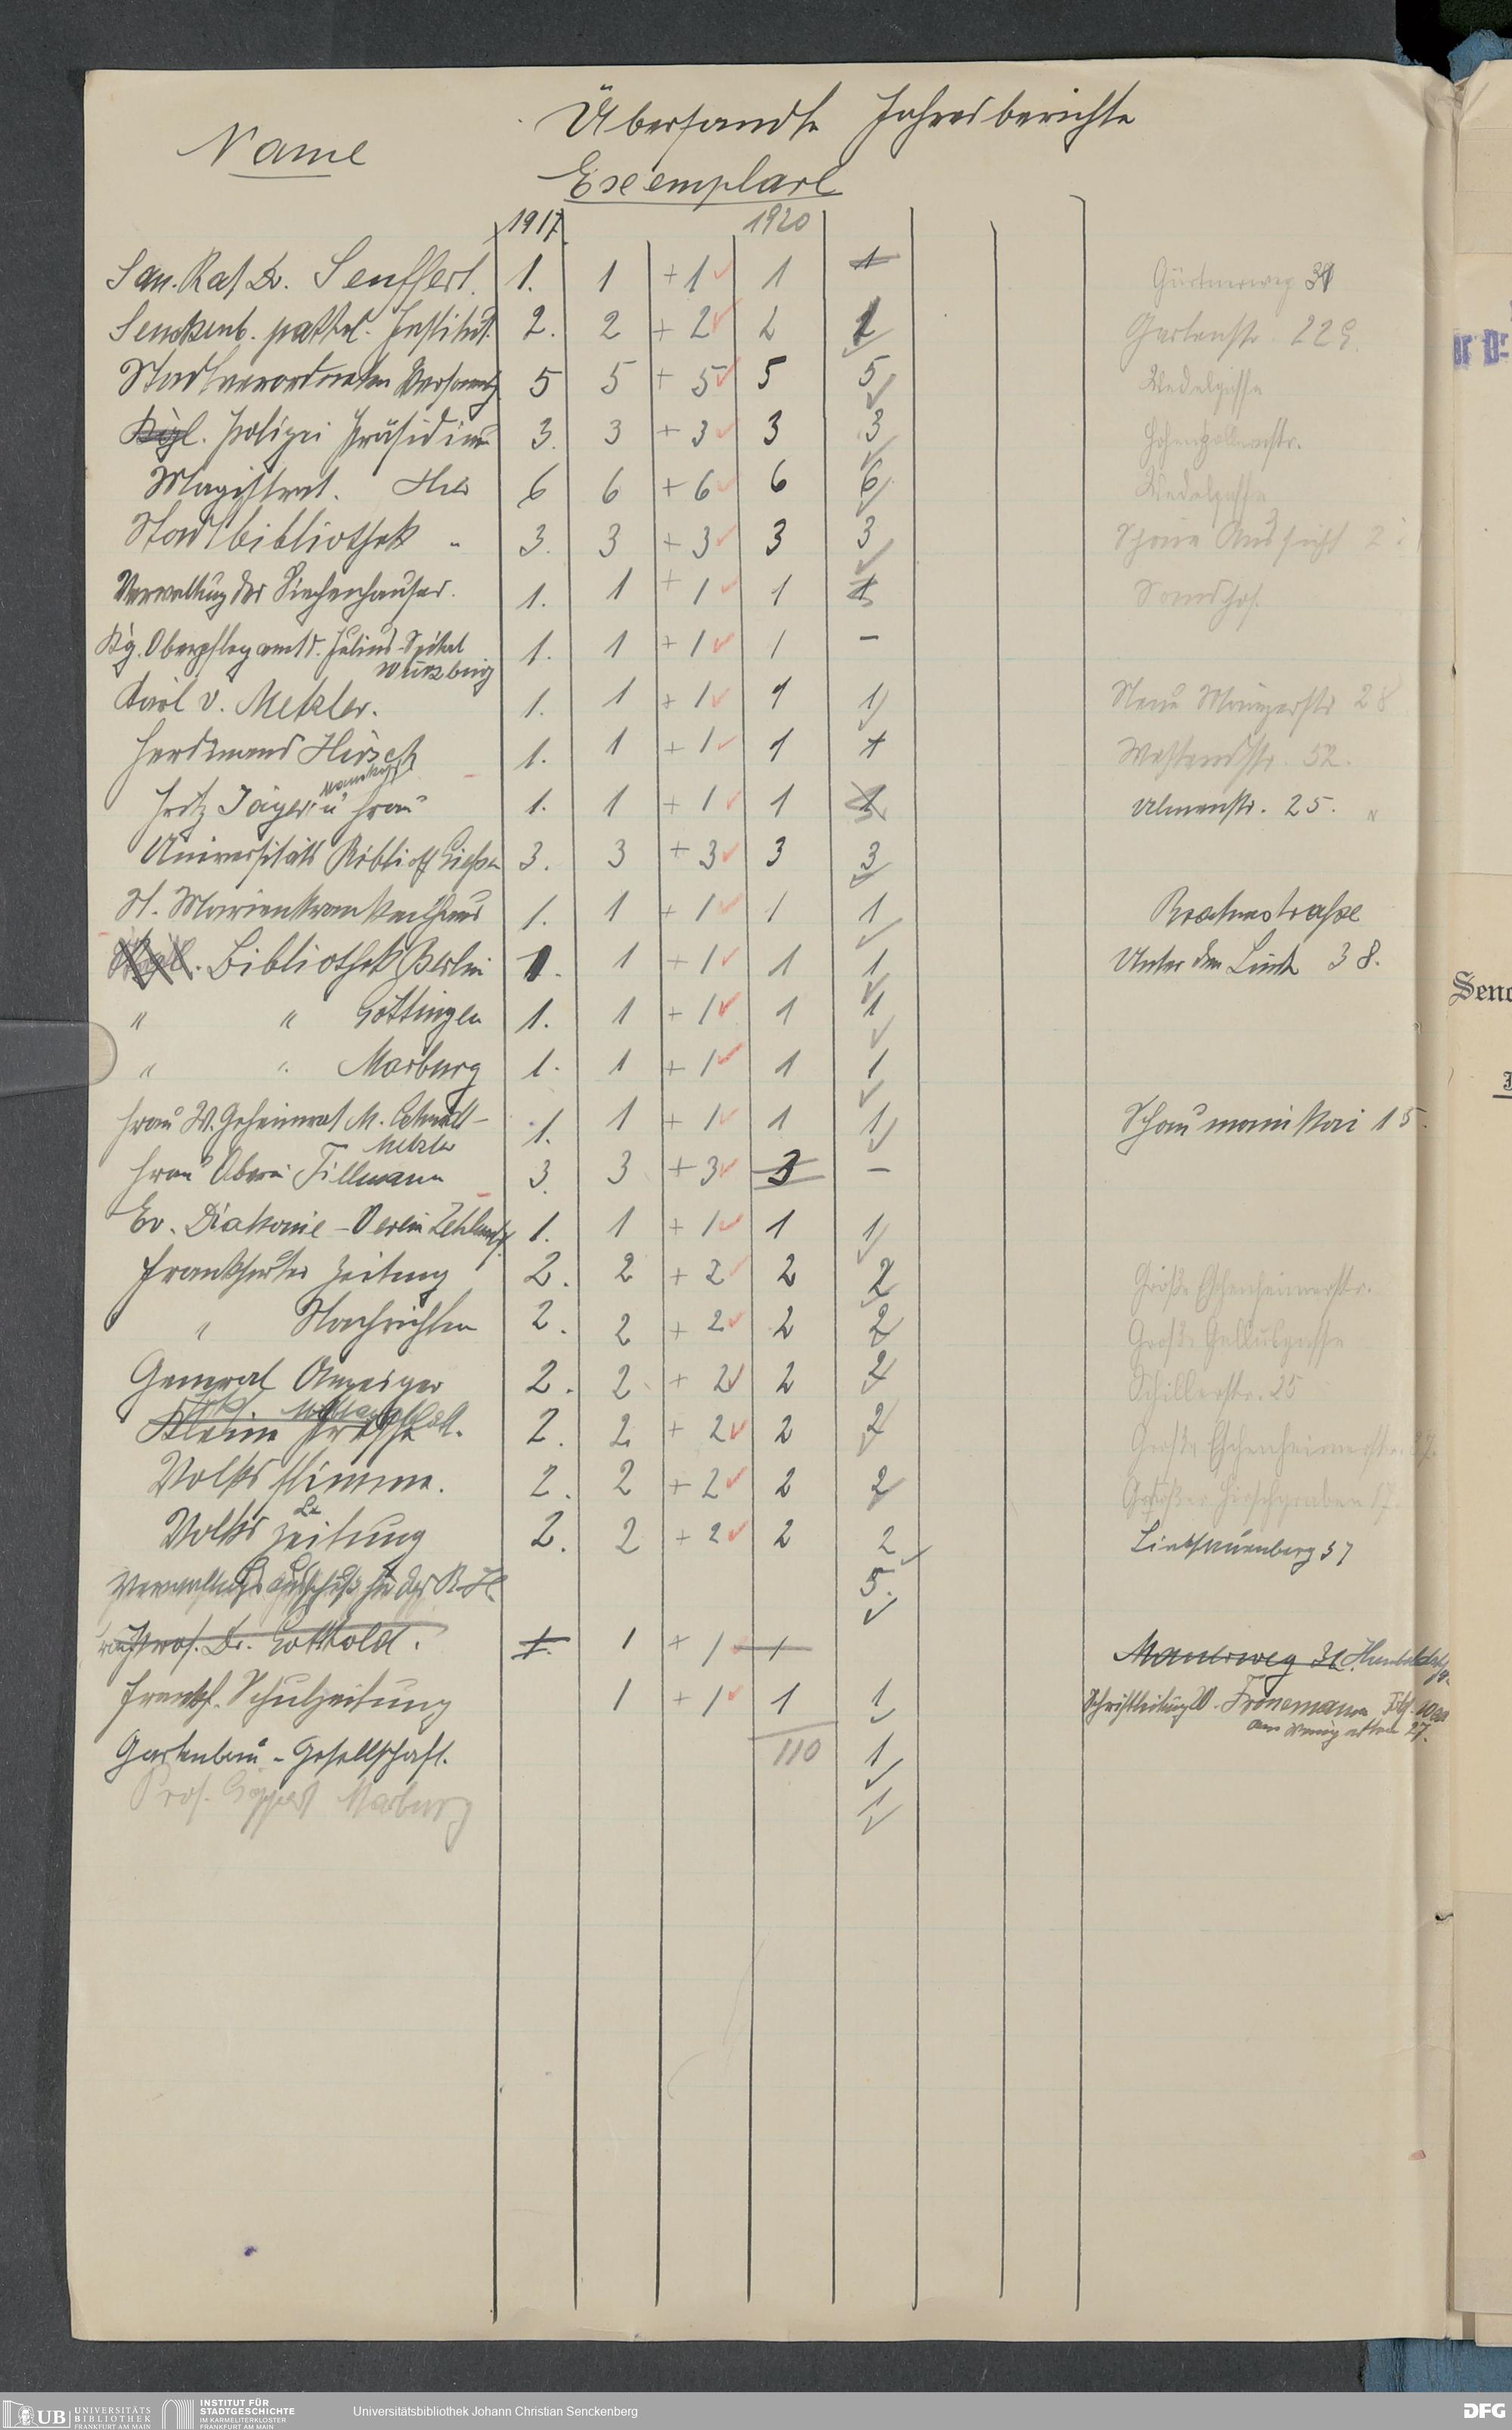 Übersandte Jahresberichte
Name
Exemplare
1917. 1920
San. Rat Dr. Senffert. 1. 1 + 1 1 1 Gärtnerweg 31
Senckenb. pathol. Institut. 2. 2 + 2 2 2 Gartenstr. 229.
Stadtverordneten Versamlg 5 5 + 5 5 5 Bedelgasse
Kgl. Polizei Präsidium 3. 3 + 3 3 3 Hohenzollernstr.
Magistrat. Hier 6 6 + 6 6 6 Bedelgasse
Stadtbibliothek " 3. 3 + 3 3 3 Schöne Aussicht 2
Verwaltung der Siechenhäuser. 1. 1 + 1 1 1 Sandhof.
Kg. Oberpflegamt d. Julius-Spital 1. 1 + 1 1 -
Würzburg
Karl v. Metzler. 1. 1 + 1 1 1 Neue Mainzerstr 28
Ferdinand Hirsch 1. 1 + 1 1 1 Westendstr. 52.
Fritz Jäger u Frau 1. 1 + 1 1 1 Ulmenstr. 25. "
Universitäts Biblioth Gießen 3. 3 + 3 3 3
St. Marienkrankenhaus 1. 1 + 1 1 1 Brahmstraße
Kgl. Bibliothek Berlin 1. 1 + 1 1 1 Unter den Lind 38.
" " Göttingen 1. 1 + 1 1 1
" " Marburg 1. 1 + 1 1 1
Frau W. Geheimrat M. Schmidt- 1. 1 + 1 1 1 Schaumainkai 15.
Metzler
Frau Oberin Tillmann 3. 3 + 3 3 -
Ev. Diakonie-Verein Zehlendf. 1. 1 + 1 1 1
Frankfurter Zeitung 2. 2 + 2 2 2 Große Eschenheimerstr.
" Nachrichten 2. 2 + 2 2 2 Große Gallusgasse
General Anzeiger 2. 2 + 2 2 2 Schillerstr. 25
Kleine Presse 2. 2 + 2 2 2 Große Eschenheimerstr. 37.
Volksstimme. 2. 2 + 2 2 2 Großer Hirschgraben 17.
Volkszeitung 2. 2 + 2 2 2 Liebfrauenberg 37
5.
Prof. Dr. Gotthold. 1. 1 + 1 1 Mauerweg 32.
Frankf. Schulzeitung 1 + 1 1 1 Schriftleitung W. Fronemann
27.
Gartenbau-Gesellschaft. 110 1
Prof. Göppert Marburg 1
UB UNIVERSITÄTS
BIBLIOTHEK
FRANKFURT AM MAIN
INSTITUT FÜR
STADTGESCHICHTE
IM KARMELITERKLOSTER
FRANKFURT AM MAIN
Universitätsbibliothek Johann Christian Senckenberg
DFG